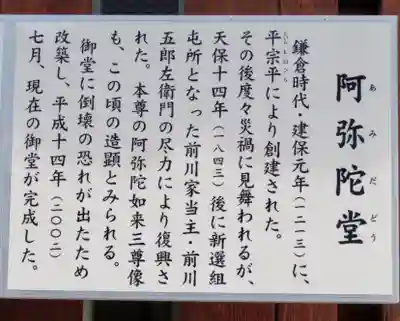 阿弥陀堂
あみだどう
鎌倉時代・建保元年(一二一三)に、
平宗平により創建された。
その後度々災禍に見舞われるが、
天保十四年(一八四三)後に新選組
屯所となった前川家当主・前川
五郎左衛門の尽力により復興さ
れた。本尊の阿弥陀如来三尊像
も、この頃の造顕とみられる。
御堂に倒壊の恐れが出たため
改築し、平成十四年(二〇〇二)
七月、現在の御堂が完成した。